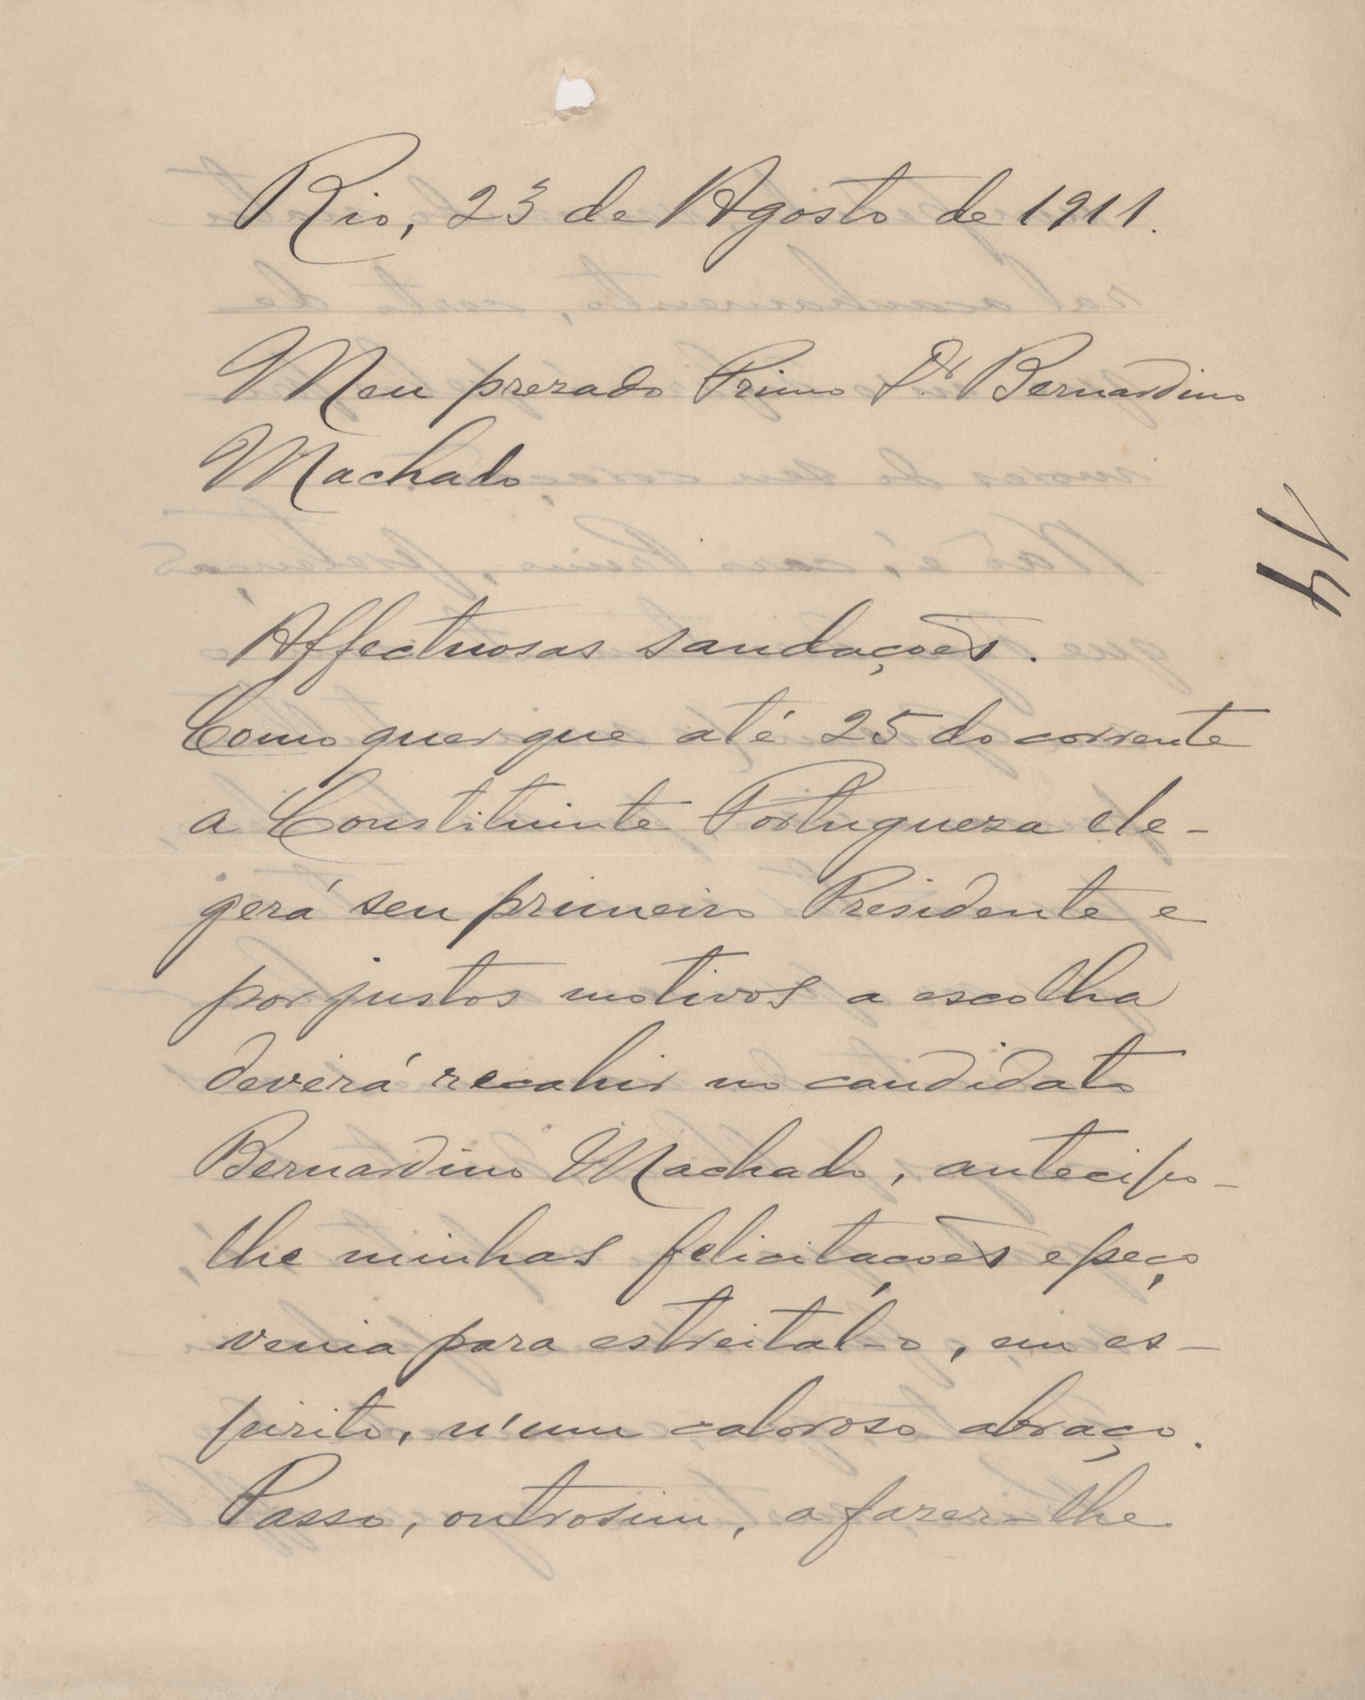 Rio, 23 de Agosto de 1911.
Meu prezado Primo Dr Bernardino
Machado
14
Affectuosas saudações.
Como quer que até 25 do corrente
a Constituinte Portugueza ele-
gerá seu primeiro Presidente e
por justos motivos a escolha
deverá recahir no candidato
Bernardino Machado, antecipo-
lhe minhas felicitações e peço
venia para estreital-o, em es-
pirito, n'um caloroso abraço.
Passo, outrosim, a fazer-lhe